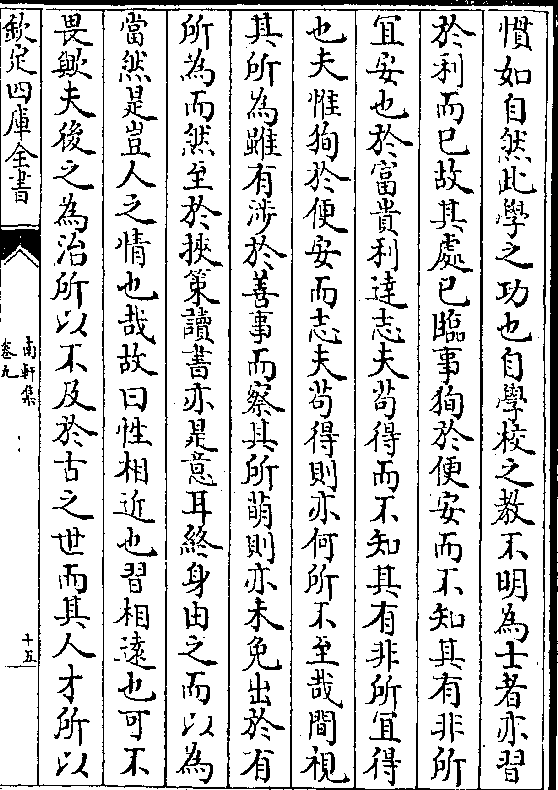 慣如自然此學之功也自學校之教不明為士者亦習
於利而已故其處已臨事狥於便安而不知其有非所
宜安也於富貴利達志夫茍得而不知其有非所宜得
也夫惟狥於便安而志夫茍得則亦何所不至哉間視
其所為雖有涉於善事而察其所萌則亦未免出於有
所為而然至於挾策讀書亦是意耳終身由之而以為
當然是豈人之情也哉故曰性相近也習相逺也可不
畏歟夫後之為治所以不及於古之世而其人才所以
欽定四庫全書
南軒集
卷九
十五